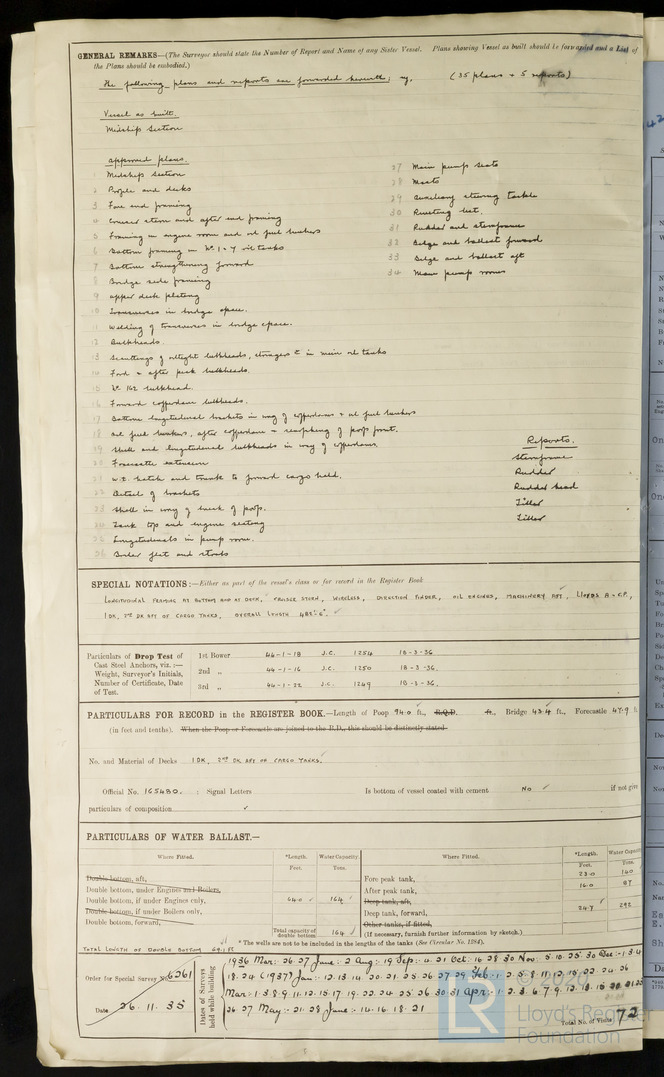 GENERAL REMARKS—(The Surveyor should state the Number of Report and Name of any Sister Vessel. Plans showing Vessel as built should be forwarded and a List of
the Plans should be embodied.)
The following plans and reports are forwarded herewith; (35 plans + 5 reports)
Vessel as built.
Midship Section
approved plans.
1 Midship section
2 Profile and decks
3 Fore end framing
4 Cruiser stern and after end framing
5 Framing in engine room and oil fuel bunkers
6 Bottom framing in No 1 - 7 oil tanks
7 Bottom strengthening forward
8 Bridge side framing
9 upper deck plating
10 Transverses in bridge space.
11 Welding of transverses in bridge space.
12 Bulkheads.
13 Scantlings of oiltight bulkheads, stringers &c in main oil tanks
14 Ford & after peak bulkheads.
15 No 162 bulkhead.
16 Forward cofferdam bulkheads.
17 Bottom longitudinal brackets in way of cofferdams & oil fuel bunkers
18 Oil fuel bunkers, after cofferdam & of poop front.
19 Shell and longitudinal bulkheads in way of cofferdams.
20 Forecastle extension
21 W.T. hatch and trunk to forward cargo hold.
22 Detail of brackets
23 Shell in way of break of poop.
24 Tank top and engine seating
25 Longitudinals in pump room.
26 Boiler flat and stools
27 Main pump seats
28 Masts
29 Auxiliary steering tackle
30 Riveting list.
31 Rudder and sternframe
32 Bilge and ballast forward
33 Bilge and ballast aft
34 Main pump rooms
Reports.
Sternframe
Rudder
Rudder head
Tiller
Tiller
SPECIAL NOTATIONS:—Either as part of the vessel's class or for record in the Register Book
LONGITUDINAL FRAMING AT BOTTOM AND AT DECK, CRUISER STERN, WIRELESS, DIRECTION FINDER, OIL ENGINES, MACHINERY AFT, LLOYDS A & C.P.,
1 DK, 2ND DK AFT OF CARGO TANKS, OVERALL LENGTH 482'-6".
Particulars of Drop Test of
Cast Steel Anchors, viz.:—
Weight, Surveyor's Initials,
Number of Certificate, Date
of Test.
1st Bower 44-1-18 J.C. 1254 18-3-36
2nd „ 44-1-16 J.C. 1250 18-3-36.
3rd „ 44-1-22 J.C. 1249 18-3-36.
PARTICULARS FOR RECORD in the REGISTER BOOK.—Length of Poop 94.0 ft., R.Q.D. ft., Bridge 43.4 ft., Forecastle 47.9 f
(in feet and tenths). When the Poop or Forecastle are joined to the B.D., this should be distinctly stated
No. and Material of Decks 1 DK, 2ND DK AFT OF CARGO TANKS.
Official No. 165480. : Signal Letters Is bottom of vessel coated with cement NO if not give
particulars of composition
PARTICULARS OF WATER BALLAST.—
Where Fitted. *Length. Water Capacity. Where Fitted. *Length. Water Capacity
Feet. Tons. Feet. Tons.
Double bottom, aft,
Double bottom, under Engines and Boilers,
Double bottom, if under Engines only, 164
Double bottom, if under Boilers only,
Double bottom, forward,
Total capacity of double bottom 164
Fore peak tank, 23.0 140
After peak tank, 16.0 87
Deep tank, aft,
Deep tank, forward, 24.7 292
Other tanks, if fitted,
(If necessary, furnish further information by sketch.)
* The wells are not to be included in the lengths of the tanks (See Circular No. 1284).
TOTAL LENGTH OF DOUBLE BOTTOM 69.1 FT
Order for Special Survey No. 6261
Date 26.11.35
Dates of Surveys
held while building
1936 Mar: 26.27 June: 2 Aug: 19 Sep: 4.21 Oct: 16.28.30 Nov: 5.10.25.30 Dec: 1.3.4
18.24 (1937) Jan: 12.13.14.20.21.25.26.27.29 Feb: 1.2.5.8.11.12.15.22.24.26
Mar: 1.3.8.9.11.12.15.17.19.22.24.25.26.30.31 Apr: 1.2.3.6.7.9.12.
26.27 May: 21.28 June: 14.16.18.21
Total No. of Visits 72
© 20
LR
Lloyd's Register
Foundation